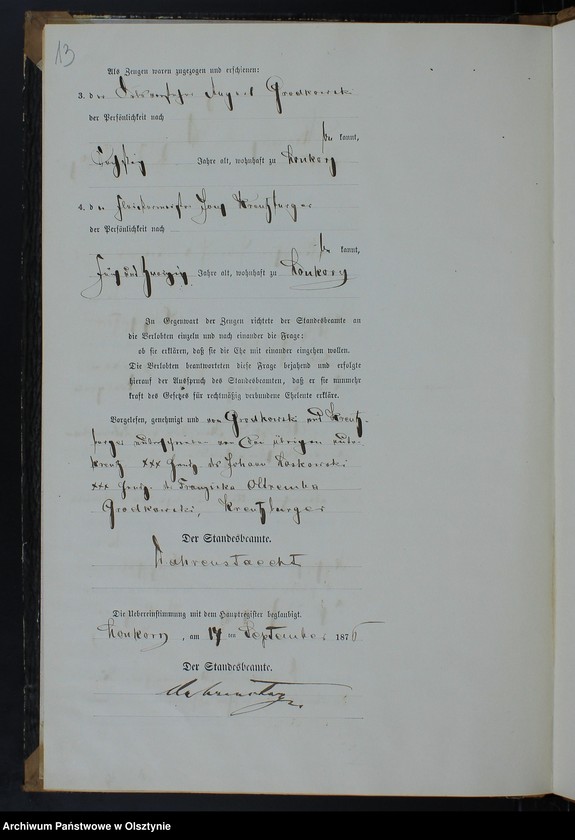 13
Als Zeugen waren zugezogen und erschienen:
3. der August Grodkowski
der Persönlichkeit nach
be kannt,
Jahre alt, wohnhaft zu Lonkorz
4. der Kreutzburger
der Persönlichkeit nach
be kannt,
Fünf und zwanzig Jahre alt, wohnhaft zu Lonkorz
In Gegenwart der Zeugen richtete der Standesbeamte an
die Verlobten einzeln und nach einander die Frage:
ob sie erklären, daß sie die Ehe mit einander eingehen wollen.
Die Verlobten beantworteten diese Frage bejahend und erfolgte
hierauf der Ausspruch des Standesbeamten, daß er sie nunmehr
kraft des Gesetzes für rechtmäßig verbundene Eheleute erkläre.
Vorgelesen, genehmigt und von Grodkowski und Kreutz-
burger unterschrieben von den übrigen unter-
kreuzt xxx Handz. des Johann Loskowski
xxx Handz. der Franziska
Grodkowski, Kreutzburger
Der Standesbeamte.
Die Uebereinstimmung mit dem Hauptregister beglaubigt.
Lonkorz, am 17 ten September 1876
Der Standesbeamte.
Archiwum Państwowe w Olsztynie